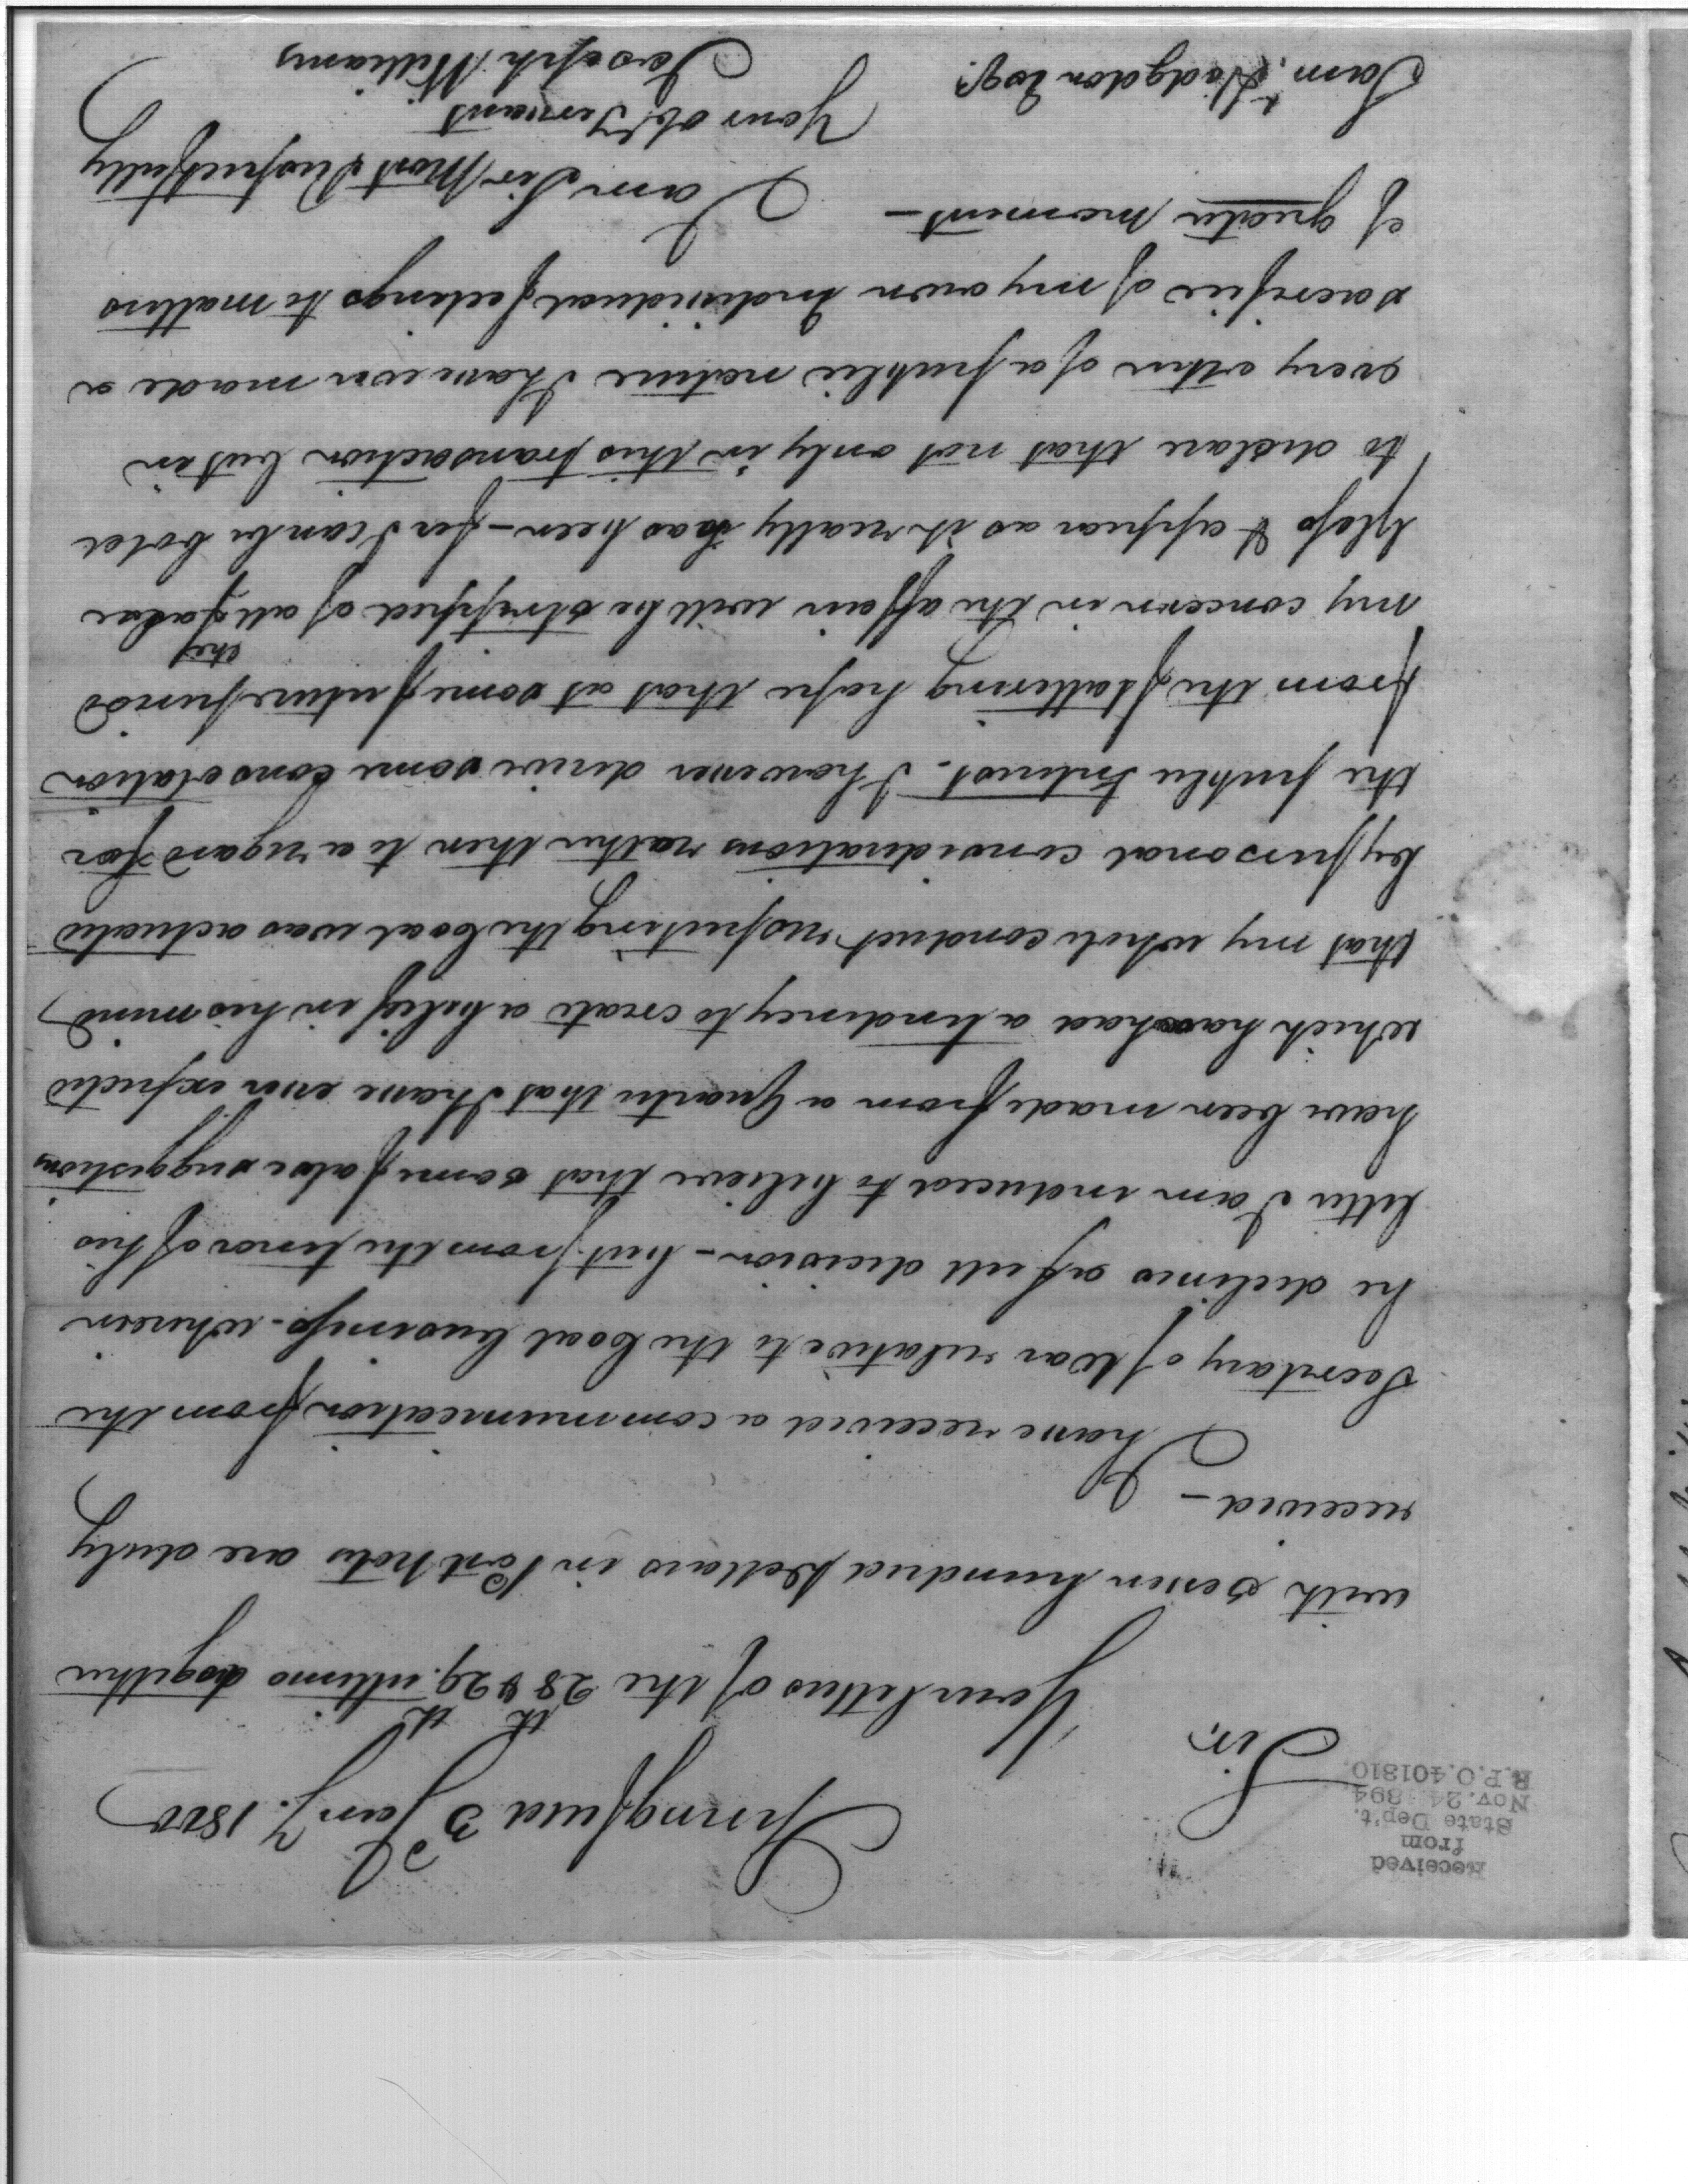 Received
from
State Dep't.
Nov. 24 1894
R.P.O. 401810.
Springfield 3d Jany. 1800
Sir,
Your letters of the 28th & 29th. ultimo together
with seven hundred Dollars in Post notes are duly
received –
I have received a communication from the
Secretary of War relative to the Coal business. wherein
he declines a full decision – but from the tenor of his
letter I am induced to believe that some false suggestions
have been made from a Quarter that I have ever expected
which have had a tendency to create a belief in his mind
that my whole conduct respecting the Coal was actuated
by personal considerations rather then to a regard for
the public Interest. I however derive some consolation
from the flattering hope that at some future period
my concern in the affair will be stripped of all false
they
Gloss & appear as it really has been – for I can be bold
to declare that not only in this transaction but in
every other of a public nature I have ever made a
sacrifice of my own Individual feelings to matters
of greater moment –
I am Sir Most Respectfully
Your obt. Servant
Joseph Williams
Saml. Hodgdon Esqr.